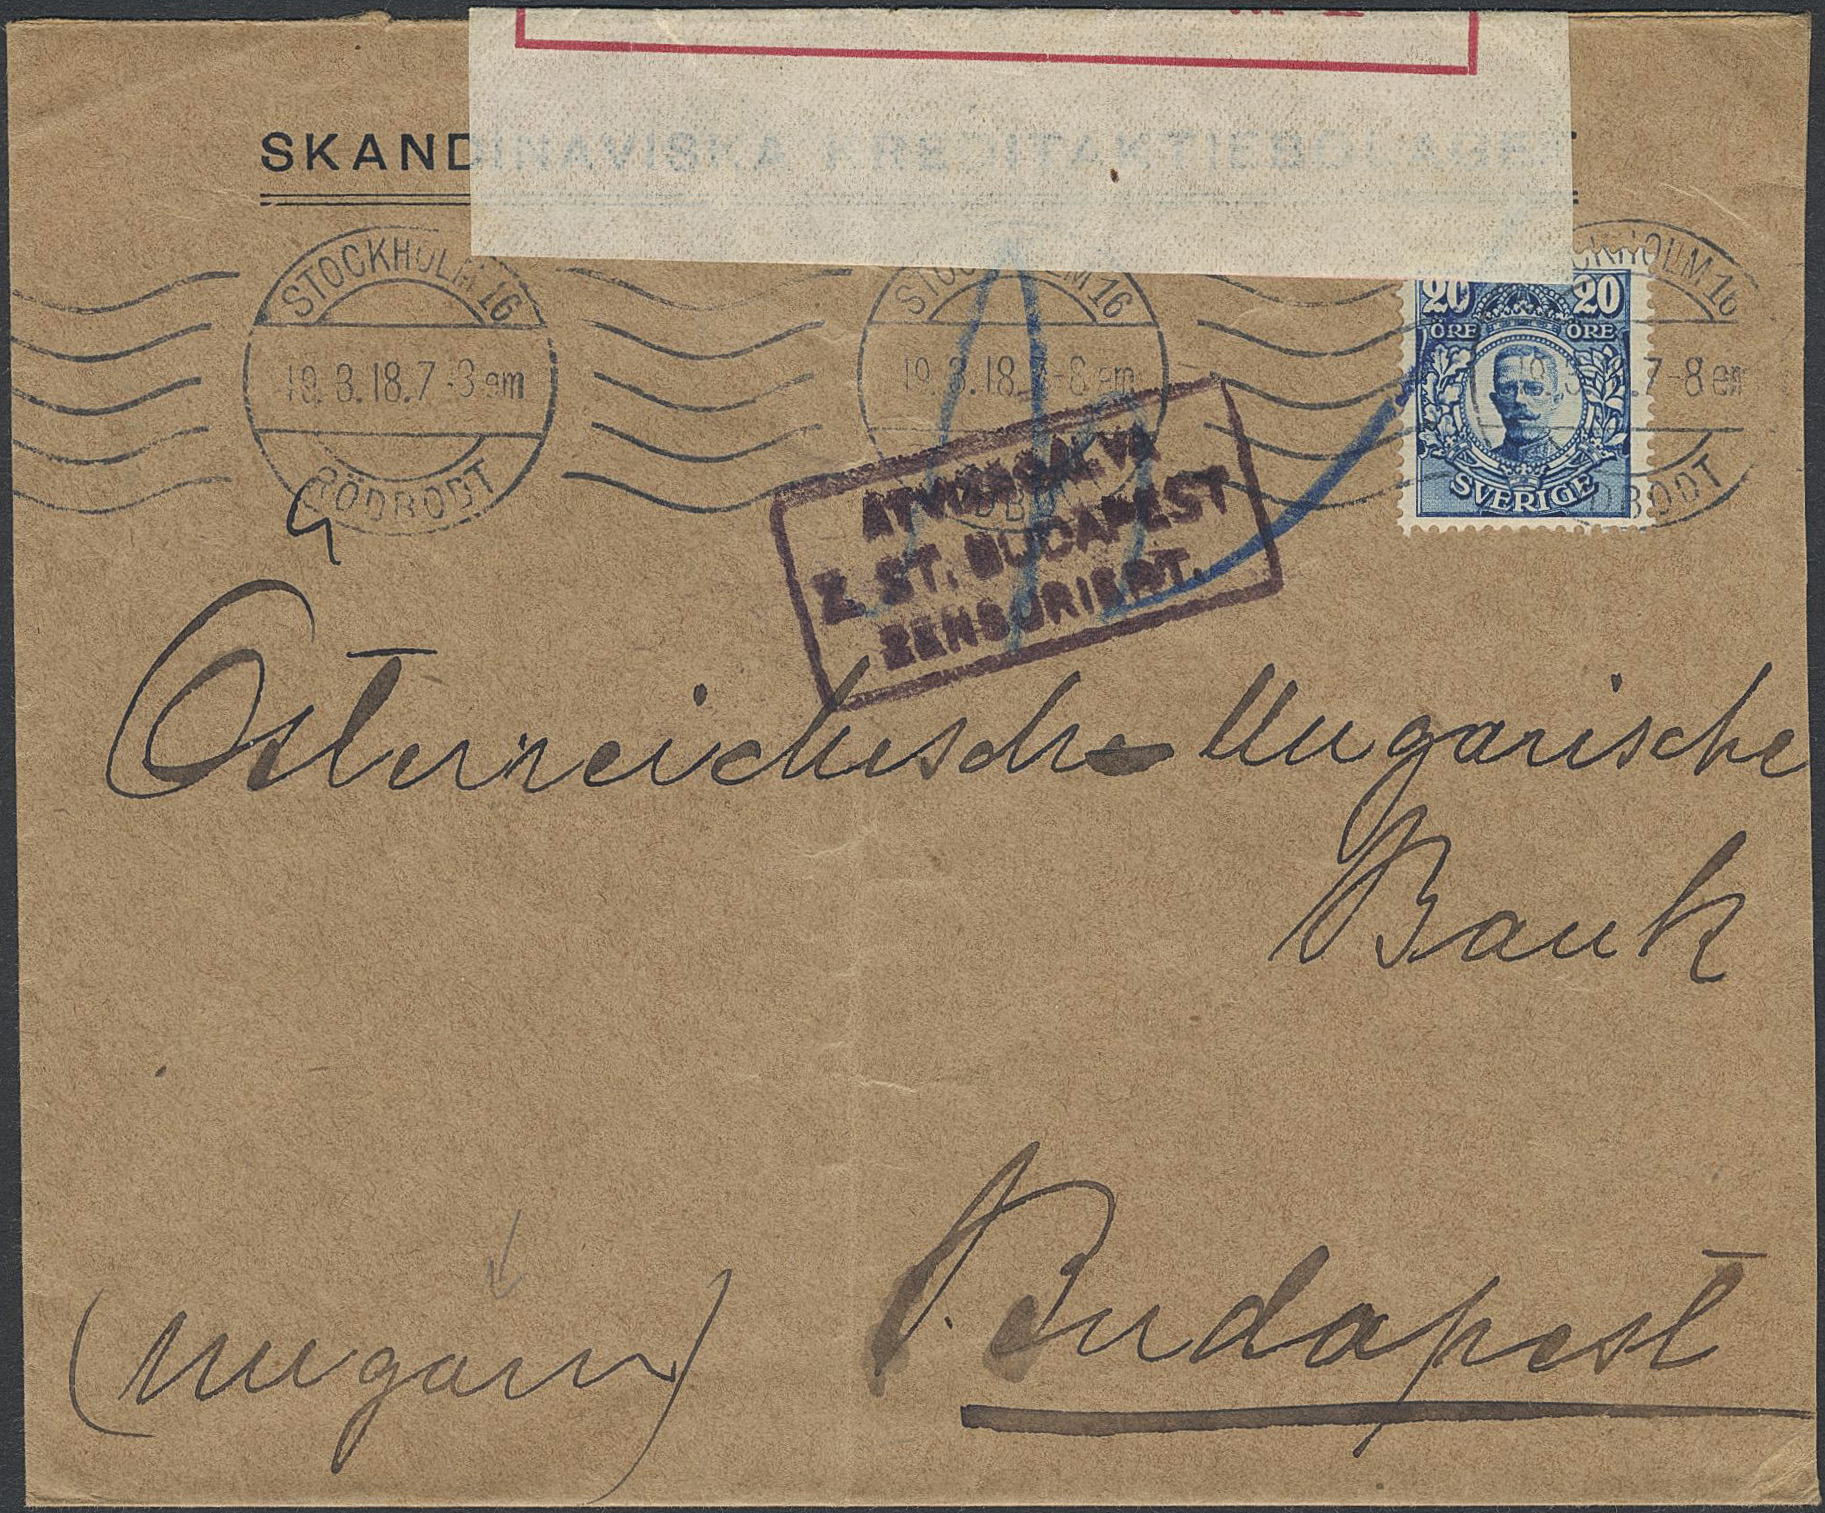 SKANDINAVISKA KREDITAKTIEBOLAGET
STOCKHOLM 16
19.3.18.7-8 em
RÖDBODT
STOCKHOLM 16
19.3.18.7-8 em
STOCKHOLM 16
7-8 em
RÖDBODT
20 20
ÖRE ÖRE
SVERIGE
ÁTVIZSGÁLVA
Z. ST. BUDAPEST
ZENSURIERT.
Österreichisch-Ungarische
Bank
Budapest
(Ungarn)